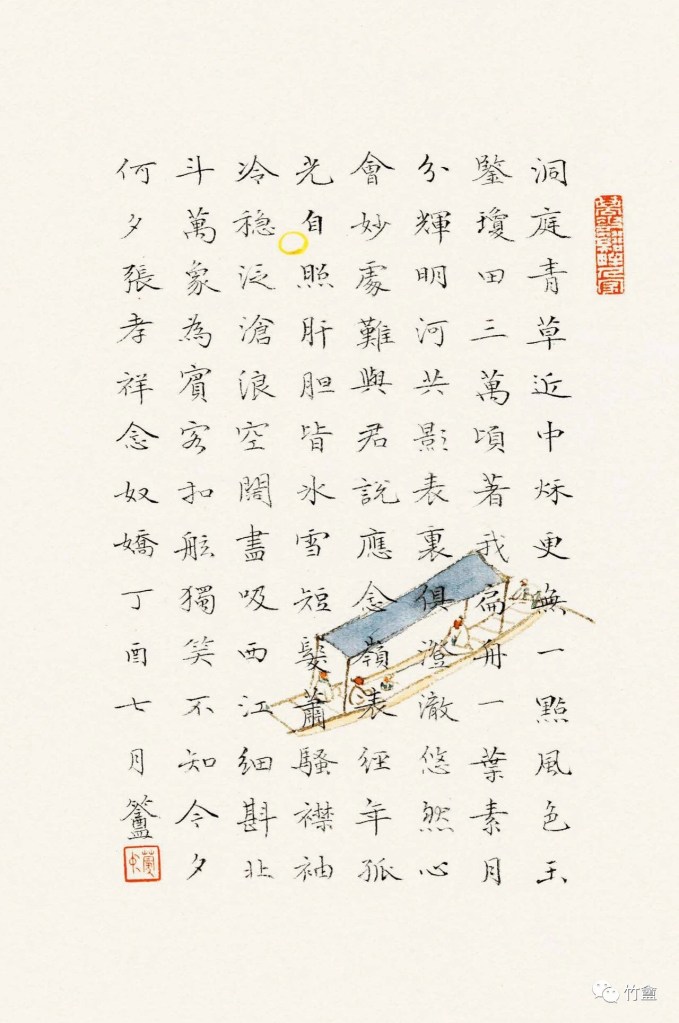 洞庭青草近中秌更無一點風色玉
鑒瓊田三萬頃著我扁舟一葉素月
分輝明河共影表裏俱澄澈悠然心
會妙處難與君說應念嶺表經年孤
光自照肝胆皆氷雪短髮蕭騷襟袖
冷稳泛滄浪空闊盡吸西江細斟北
斗萬象為賓客扣舷獨笑不知今夕
何夕張孝祥念奴嬌丁酉七月竹盦
竹盦